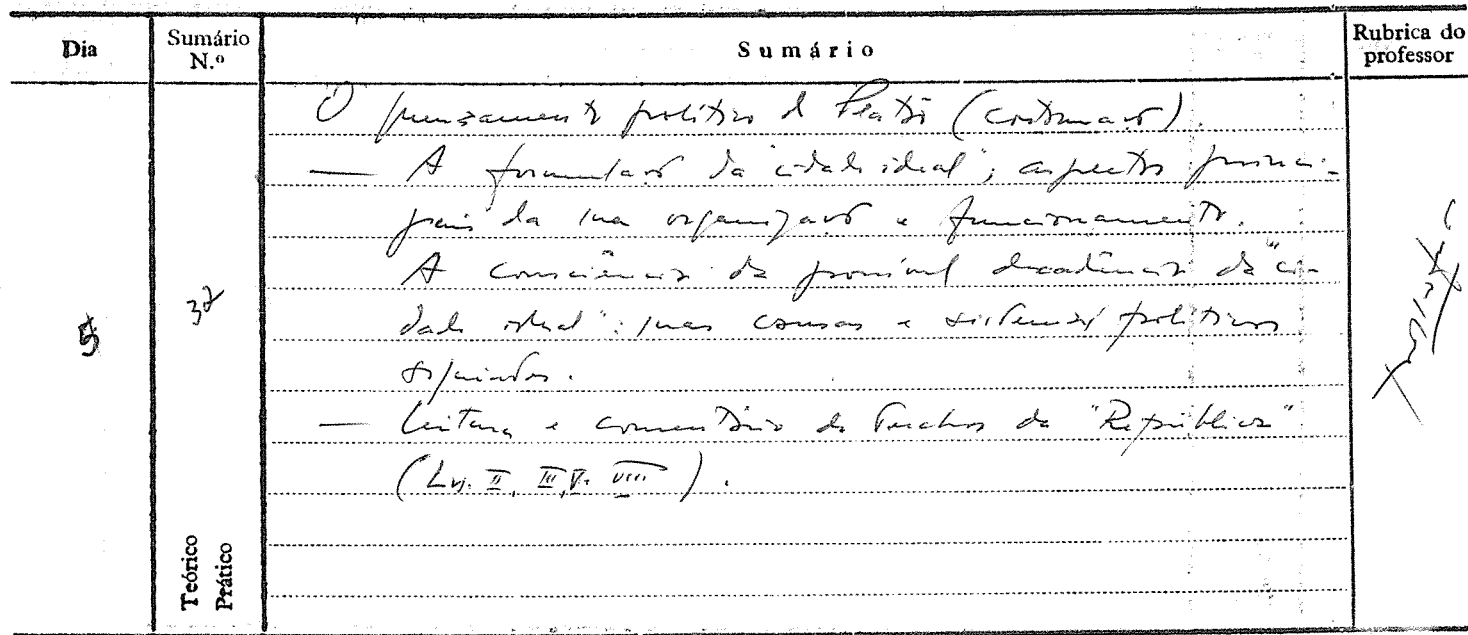 Dia
Sumário N.º
Sumário
Rubrica do professor
O pensamento político de Platão (continuação).
— A formulação da "cidade ideal"; aspectos princi-
pais da sua organização e funcionamento.
A consciência da possível decadência da "ci-
dade ideal": suas causas e sistemas políticos
5
37
— Leitura e comentário de trechos da "República"
(Liv. II, III, V, VIII).
Teórico
Prático